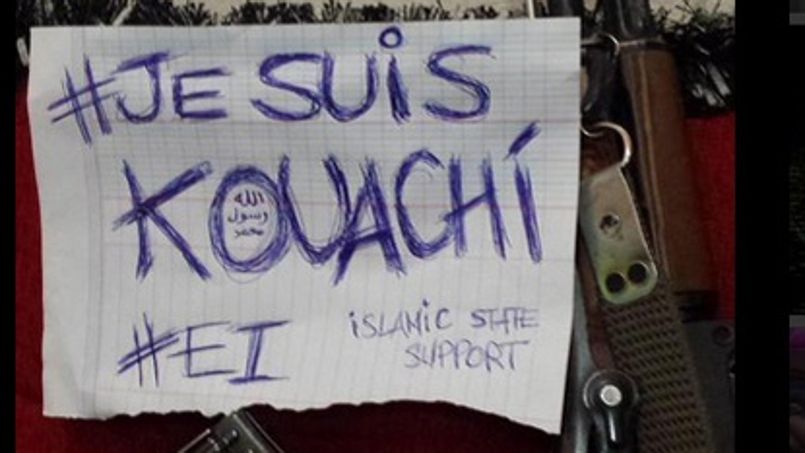 #JE SUIS
KOUACHI
الله
رسول
محمد
#EI
ISLAMIC STATE
SUPPORT